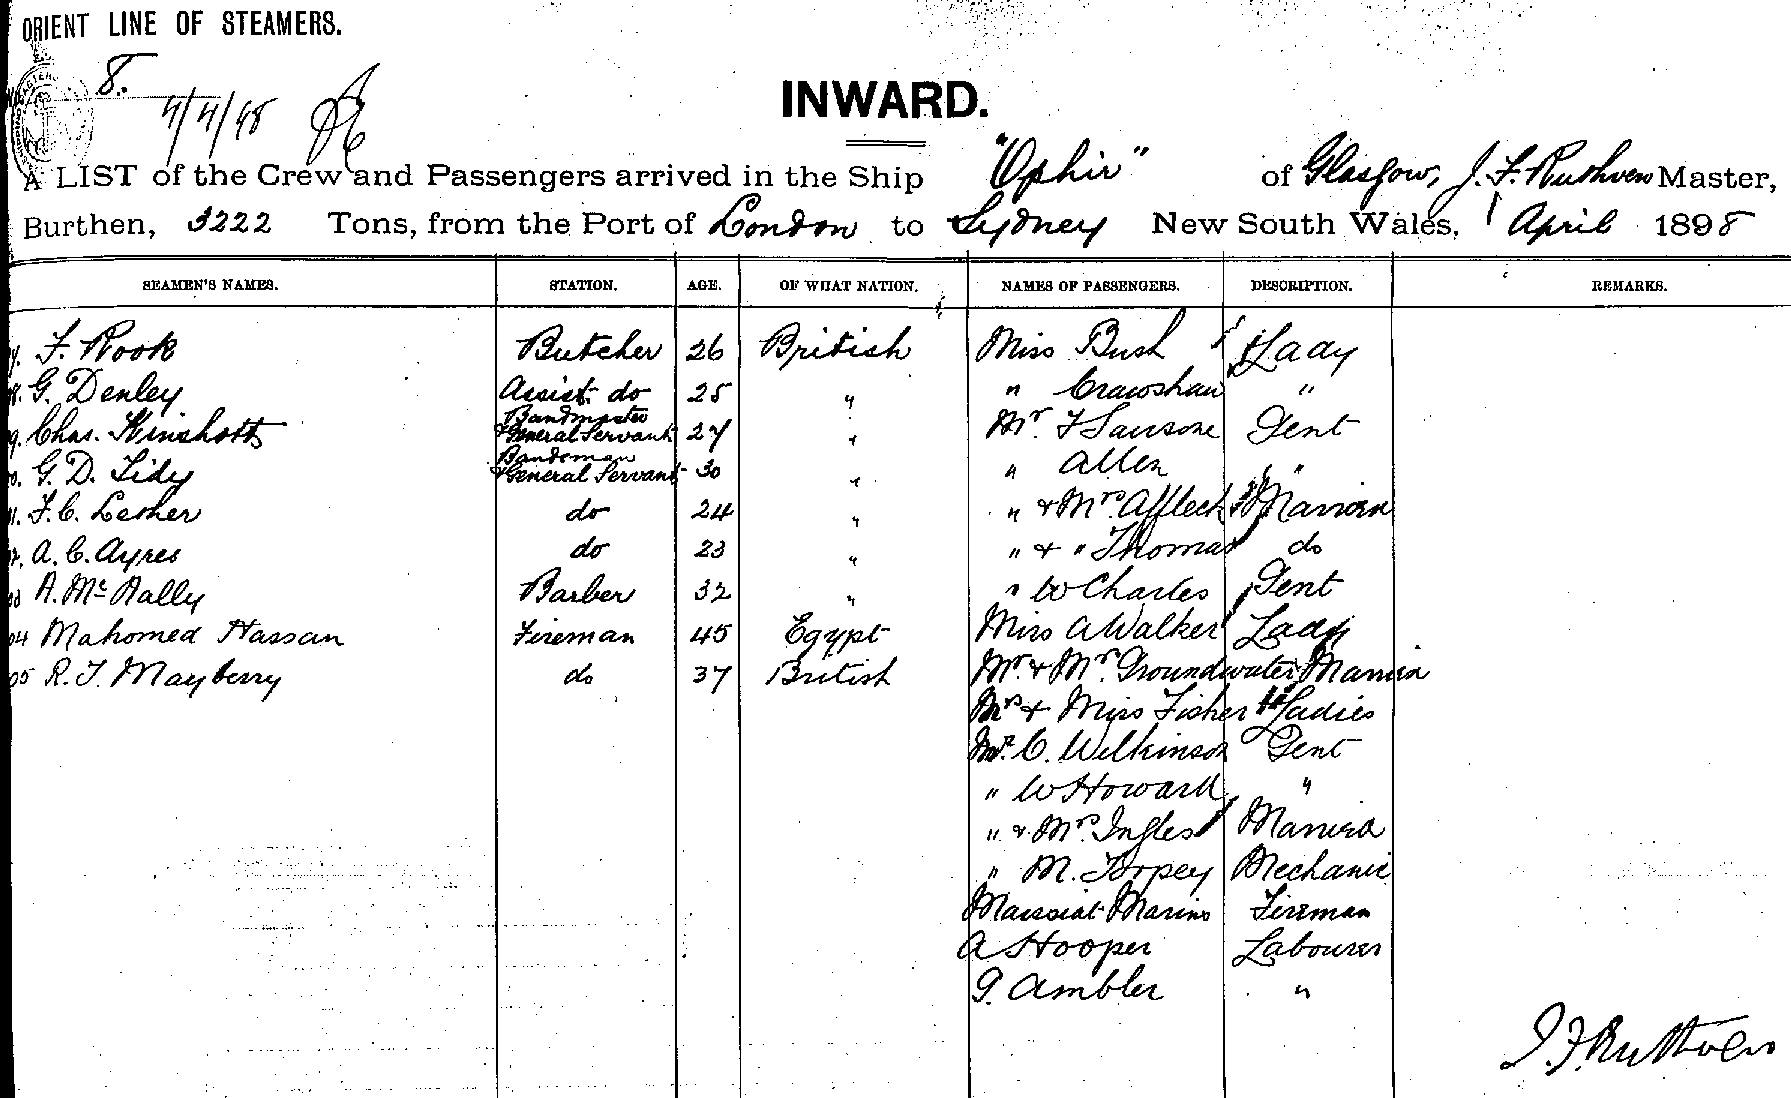 ORIENT LINE OF STEAMERS.
8.
4/4/98
INWARD.
A LIST of the Crew and Passengers arrived in the Ship "Ophir" of Glasgow, J. F. Ruthven Master,
Burthen, 3222 Tons, from the Port of London to Sydney New South Wales, 1 April 1898
SEAMEN'S NAMES. STATION. AGE. OF WHAT NATION. NAMES OF PASSENGERS. DESCRIPTION. REMARKS.
F. Rook Butcher 26 British Miss Bush Lady
G. Denley Assist. do 25 " " Crawshaw "
Chas. Kinshott Bandmaster & General Servant 27 " Mr. F Sansone Gent
G. D. Tidy Bandsman & General Servant 30 " " Allen "
F. C. Lesher do 24 " " & Mrs Affleck Married
A. C. Ayres do 23 " " & " Thomas do
A. McNally Barber 32 " " W Charles Gent
04 Mahomed Hassan Fireman 45 Egypt Miss A Walker Lady
05 R. T. Mayberry do 37 British Mr. & Mrs. Groundwater Married
Mrs & Miss Fisher Ladies
Mr. C. Wilkinson Gent
" W Howard "
" & Mrs Ingles Married
" M. Torpey Mechanic
Marino Fireman
A Hooper Labourer
G. Ambler "
J. F. Ruthven